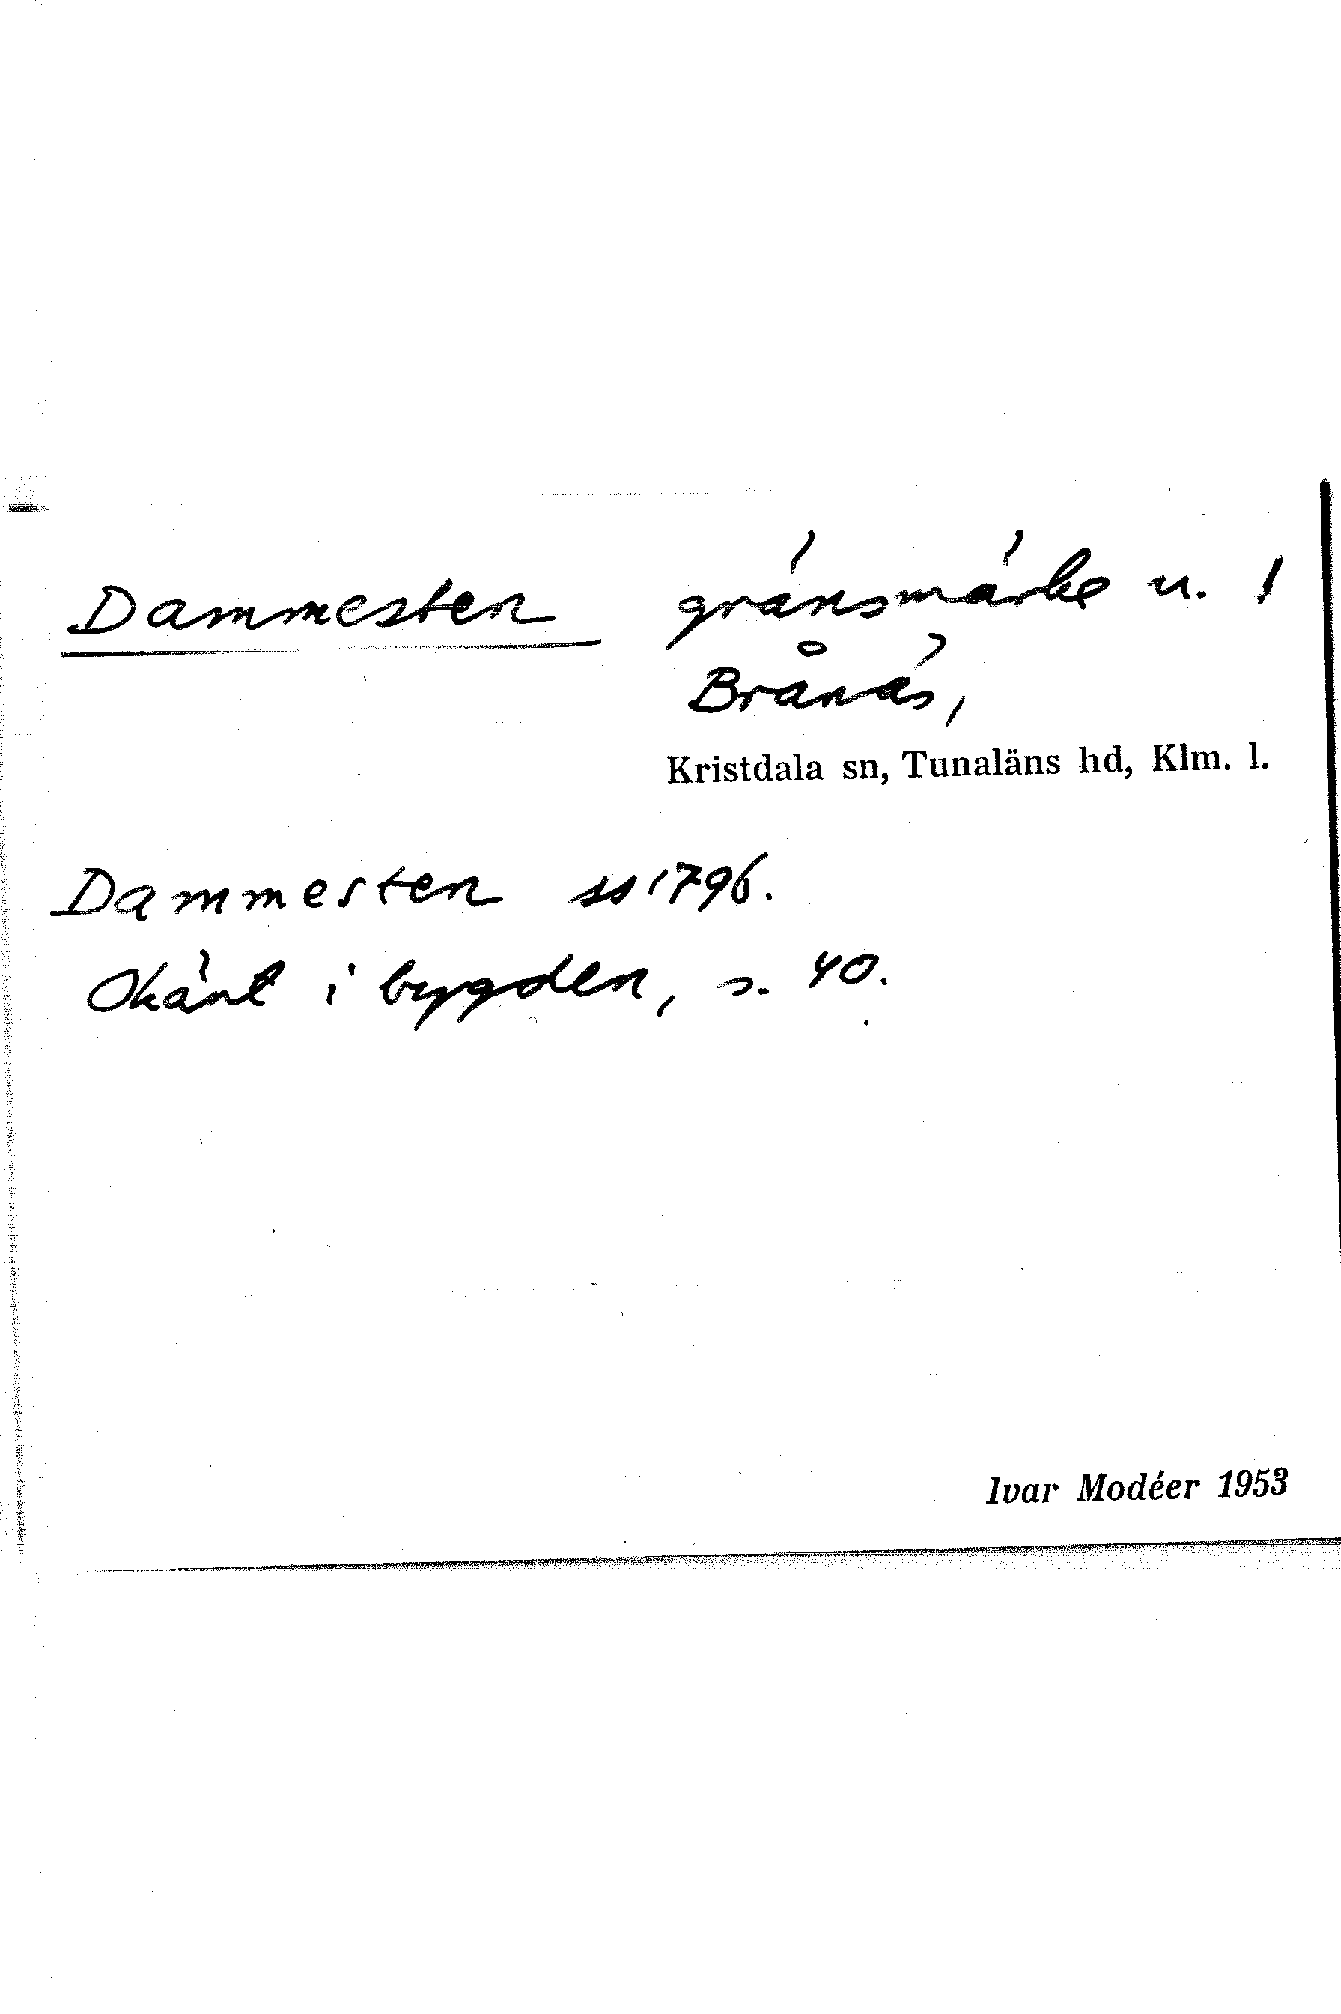 Dammesten gränsmärke u. 1
Brånäs,
Kristdala sn, Tunaläns hd, Klm. l.
Dammesten ss 1796.
Okänt i bygden, s. 40.
Ivar Modéer 1953